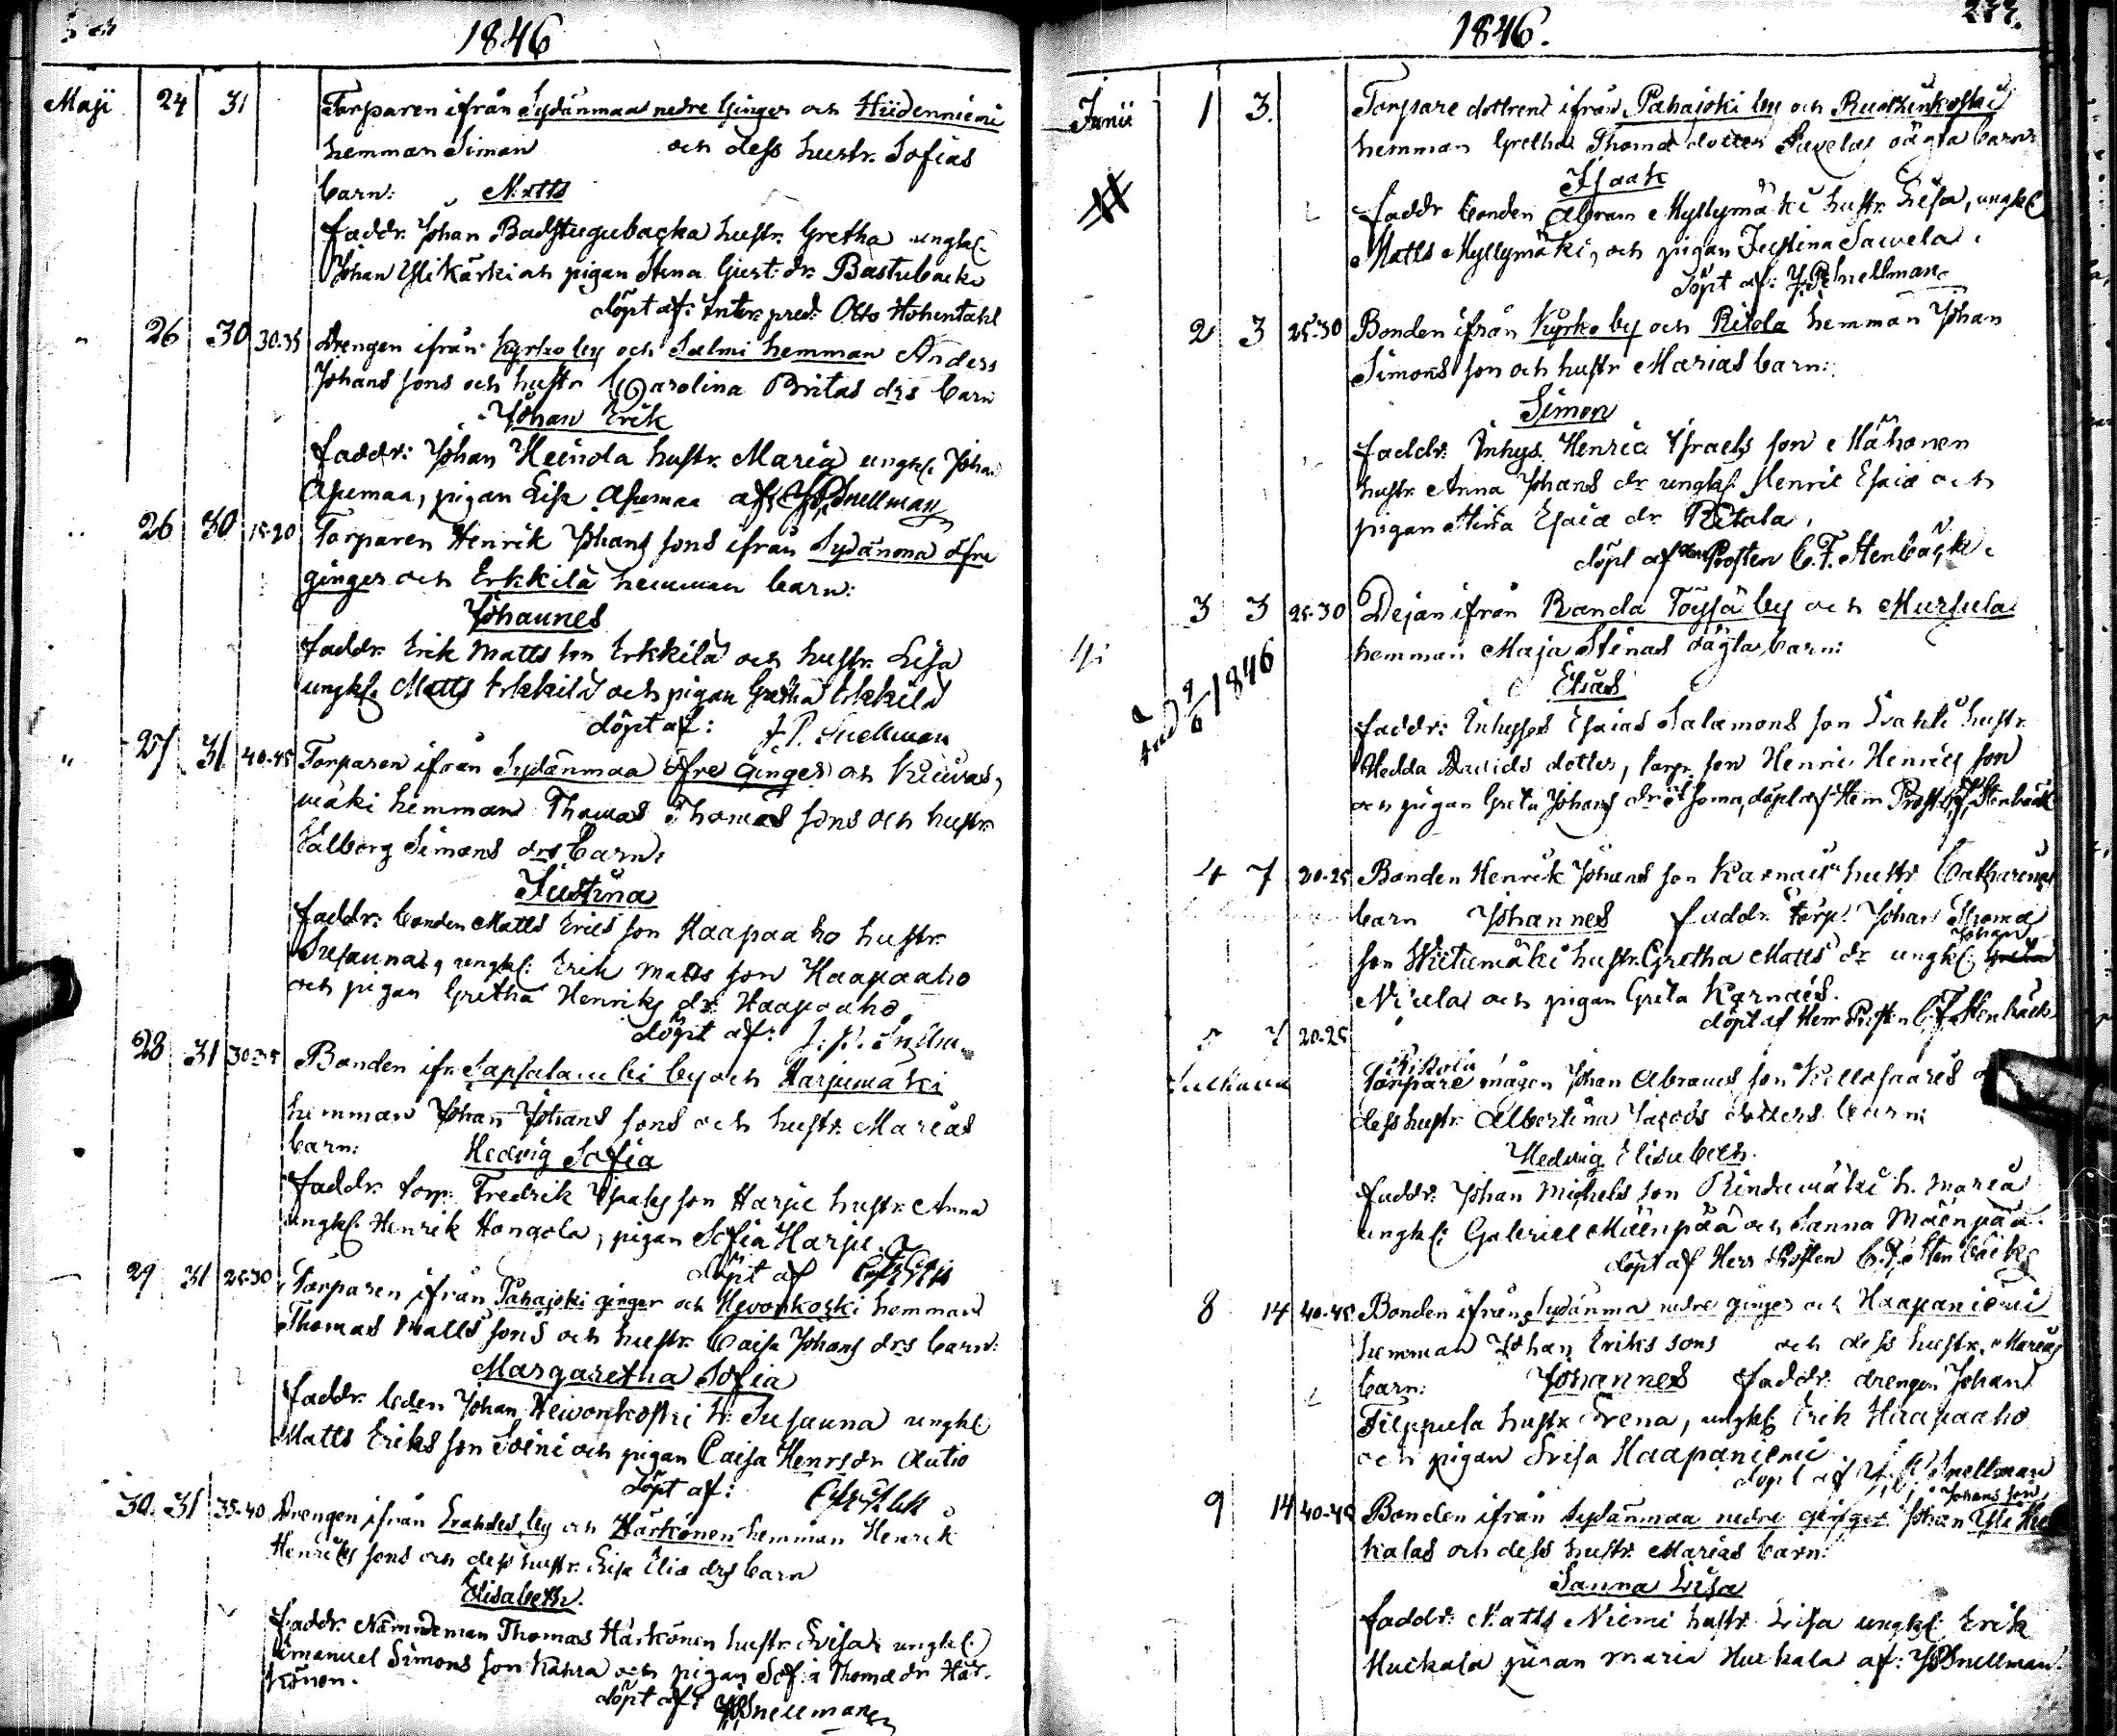 1846
Maji 24 31 Torparen ifrån Sydänmaa nedre Ginger och Hiidenniemi
hemman Simon och dess hustr. Sofias
barn: Matts
faddr. Johan Badstugubacka hustr. Gretha ungk.
Johan Yli Kärki och pigan Stina Gust. dr. Bastubacka
döpt af: Inter. pred. Otto Hohentahl
" 26 30 30-35 Drengen ifrån Kyrko by och Salmi hemman Anders
Johans sons och hustr Carolina Britas drs barn
Johan Erik
faddr: Johan Heinda hustr. Maria ungk. Joha
Asumaa, pigan Lisa Asumaa af: J.P. Snellman
" 26 30 15-20 Torparen Henrik Johans sons ifrån Sydänma öfre
ginger och Erkkilä hemman barn:
Johannes
faddr. Erik Matts son Erkkilä och hustr. Lisa
ungk. Matts Erkkilä och pigan Gretha Erkkilä
döpt af: J.P. Snellman
" 27 31 40-45 Torparen ifrån Sydänmaa öfre ginger och
mäki hemman Thomas Thomas sons och hustr
Valborg Simons drs barn:
Justina
faddr: bonden Matts Erics son Haapaaho hustr.
Susanna, ungk: Erik Matts son Haapaaho
och pigan Gretha Henriks dr. Haapaaho
döpt af:
28 31 30-35 Bonden ifr. by och Harjumäki
hemman Johan Johans sons och hustr. Marias
barn: Hedvig Sofia
faddr. torp. Fredrik Isaks son Harju hustr. Anna
ungk. Henrik Hongola, pigan Sofia Harju.
döpt af
29 31 25-30 Torparen ifrån Pahajoki ginger och Hevonkoski hemman
Thomas Matts sons och hustr. Caisa Johans drs barn:
Margaretha Sofia
faddr. bden Johan Hevonkoski h. Susanna ungk
Matts Eriks son Soini och pigan Caisa Henrs dr Autio
döpt af:
30. 31 35-40 Drengen ifrån by och Härkönen hemman Henrik
Henriks sons och dess hustr. Lisa Elia drs barn
Elisabeth.
faddr. Nämndeman Thomas Härkönen hustr. Lisa ungk.
Emanuel Simons son Kahra och pigan Sofia Thoma dr Här-
könen.
döpt af: J.P. Snellman
1846.
Junii 1 3. Torpare dottrens ifrån Pahajoki by och
hemman Gretha Thoma dotter Savelas oägta barn:
Isaak
faddr bonden Abram Myllymäki hustr. Lisa, ungk
Matts Myllymäki, och pigan Justina Sawela.
döpt af: J.P. Snellman
2 3 25-30 Bonden ifrån Kyrko by och Ritola hemman Johan
Simons son och hustr Marias barn:
Simon
faddr. Inhys. Henric Israels son Mähonen
hustr. Anna Johans dr ungk. Henric Esaia och
pigan Stina Esaia dr. Ritola,
döpt af Herr Prosten C.F. Stenbäck.
3 3 25-30 Dejan ifrån Randa Töysä by och Mursula
hemman Maja Stinas oägta barn:
Elias
faddr: Inhyses Esaias Salamons son hustr.
Hedda Davids dotter, torp. son Henric Henrics son
och pigan Greta Johans dr döpt af Herr Prosten C.F. Stenbäck
död 9/6 1846
4 7 20-25 Bonden Henrik Johans son Karnais hustr Catharinas
barn Johannes faddr. torp. Johan Thoma
son Wiitamäki hustr. Gretha Matts dr ungk: Johan
Nicula och pigan Greta Karnais.
döpt af Herr Prosten C.F. Stenbäck
7 20-25
Torpare mågen Johan Abrams son Killosaares
dess hustr. Albertina Jacobs dotters barn:
Hedvig Elisabeth.
faddr. Johan Michels son Rindamäki h. Maria
ungk: Gabriel Mäenpää och Sanna Mäenpää.
döpt af Herr Prosten C.F. Stenbäck
8 14 40-45 Bonden ifrån Sydänma nedre ginger och Haapaniemi
hemman Johan Eriks sons och dess hustr. Marias
barn: Johannes faddr: drengen Johan
Filppula hustr Lena, ungk Erik Haapaaho
och pigan Lisa Haapaniemi
döpt af J.P. Snellman
Johans son
9 14 40-45 Bonden ifrån Sydänmaa nedre ginger Johan Yli
kalas och dess hustr. Marias barn:
Sanna Lisa
faddr: Matts Niemi hustr Lisa ungk Erik
Huckala pigan Maria Huckala af: J.P. Snellman.